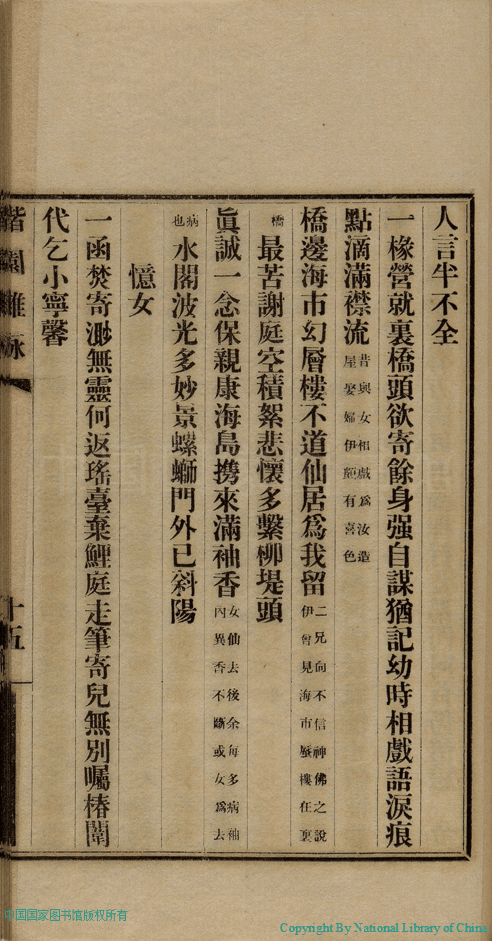 人言半不全
一椽營就裏橋頭欲寄餘身强自謀猶記幼時相戲語淚痕
點滴滿襟流昔與女相戲爲汝造屋娶婦伊頗有喜色
橋邊海市幻層樓不道仙居爲我留二兄向不信神佛之說伊曾見海市蜃樓在裏
橋最苦謝庭空積絮悲懷多繫柳堤頭
眞誠一念保親康海島携來滿袖香女仙去後余每多病袖內異香不斷或女爲去
病也水閣波光多妙景螺螄門外已斜陽
憶女
一函焚寄渺無靈何返瑤臺棄鯉庭走筆寄兒無別囑椿闈
代乞小寧馨
諧園雜詠
十五
中国国家图书馆版权所有
Copyright By National Library of China